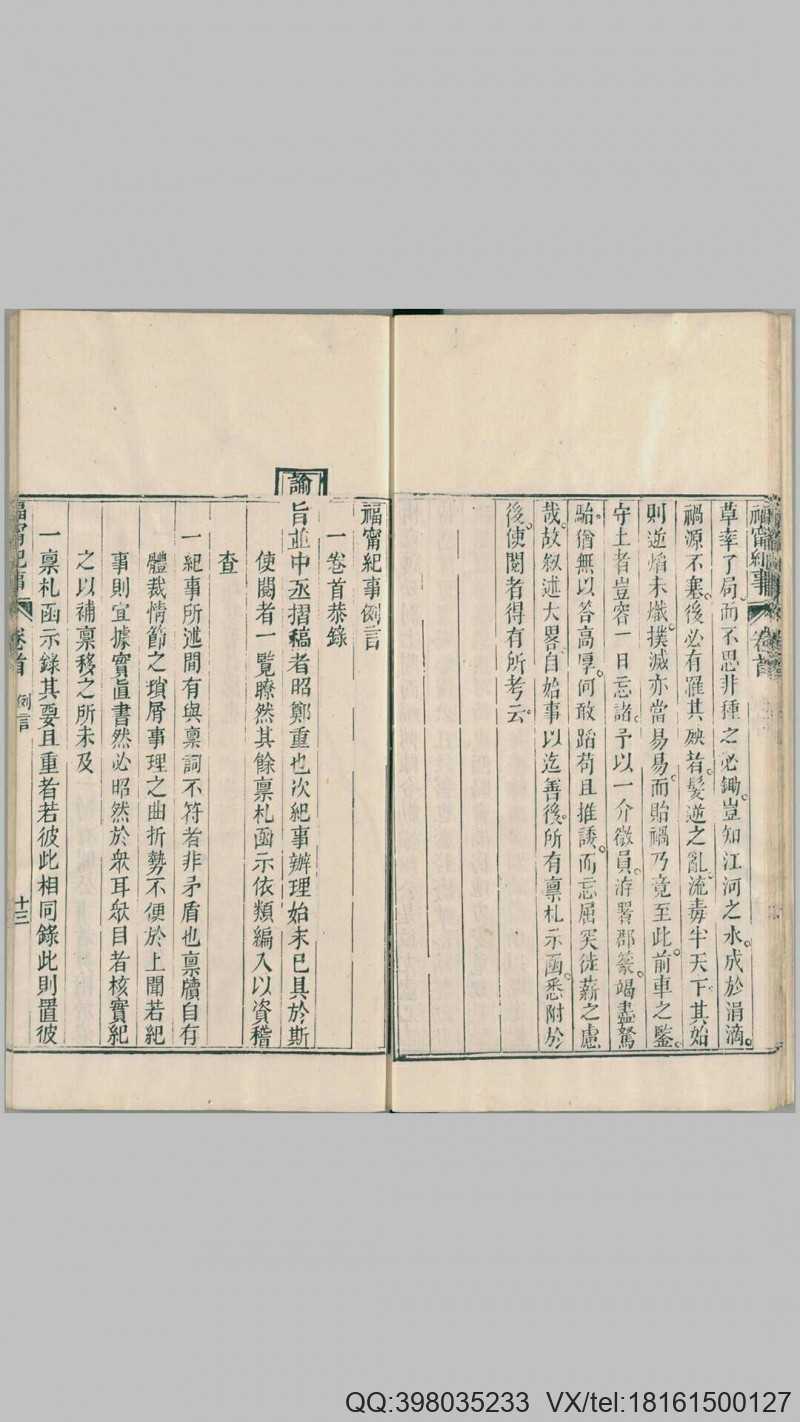 福甯紀事
卷首
草率了局而不思非種之必鋤豈知江河之水成於涓滴。
禍源不塞。後必有罹其殃者。髮逆之亂。流毒半天下。其始
則逆焰未熾。撲滅亦當易易。而貽禍乃竟至此。前車之鑒。
守土者豈容一日忘諸。予以一介微員。洊署郡篆。竭盡駑
駘。猶無以答高厚。何敢蹈苟且推諉。而忘屈突徙薪之慮
哉。故叙述大畧。自始事以迄善後。所有禀札示函。悉附於
後。使閱者得有所考云。
福甯紀事例言
一卷首恭錄
諭
旨並中丞摺稿者昭鄭重也次紀事辦理始末已具於斯
使閱者一覽瞭然其餘禀札函示依類編入以資稽
查
一紀事所述間有與禀詞不符者非矛盾也禀牘自有
體裁情節之瑣屑事理之曲折勢不便於上聞若紀
事則宜據實眞書然必昭然於衆耳衆目者核實紀
之以補禀移之所未及
一禀札函示錄其要且重者若彼此相同錄此則置彼
福甯紀事
卷首
例言
十三
QQ:398035233 VX/tel:18161500127